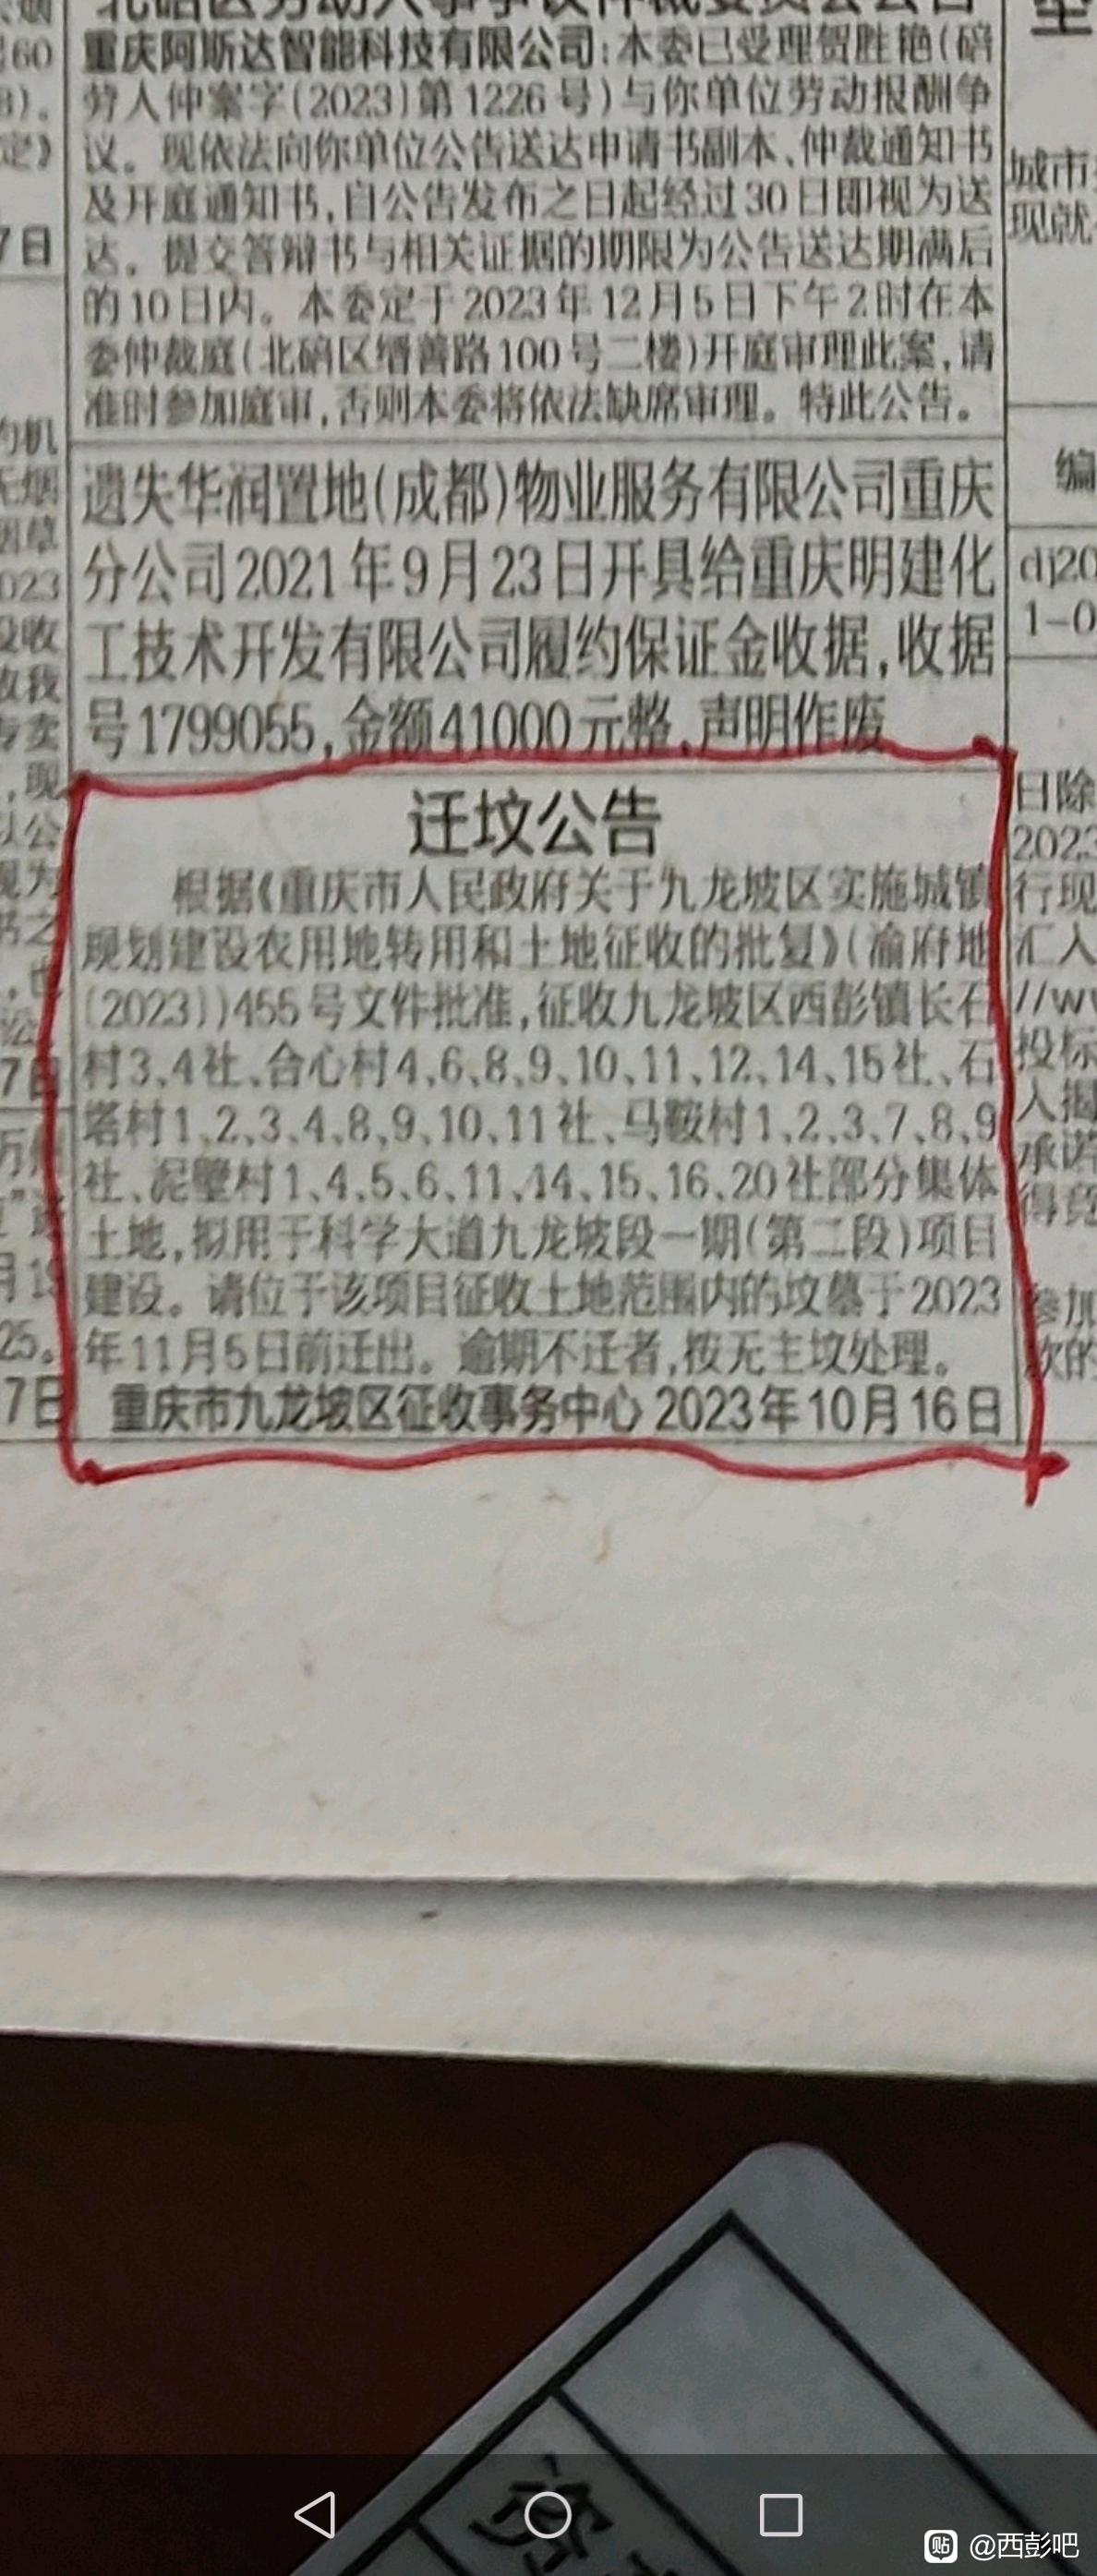 重庆阿斯达智能科技有限公司:本委已受理贺胜艳(碚
劳人仲案字(2023)第1226号)与你单位劳动报酬争
议。现依法向你单位公告送达申请书副本、仲裁通知书
及开庭通知书,自公告发布之日起经过30日即视为送
达。提交答辩书与相关证据的期限为公告送达期满后
的10日内。本委定于2023年12月5日下午2时在本
委仲裁庭(北碚区缙善路100号二楼)开庭审理此案,请
准时参加庭审,否则本委将依法缺席审理。特此公告。
遗失华润置地(成都)物业服务有限公司重庆
分公司2021年9月23日开具给重庆明建化
工技术开发有限公司履约保证金收据,收据
号1799055,金额41000元整,声明作废
迁坟公告
根据《重庆市人民政府关于九龙坡区实施城镇
规划建设农用地转用和土地征收的批复》(渝府地
(2023))455号文件批准,征收九龙坡区西彭镇长石
村3、4社、合心村4、6、8、9、10、11、12、14、15社、石
塔村1、2、3、4、8、9、10、11社、马鞍村1、2、3、7、8、9
社、泥壁村1、4、5、6、11、14、15、16、20社部分集体
土地,拟用于科学大道九龙坡段一期(第二段)项目
建设。请位于该项目征收土地范围内的坟墓于2023
年11月5日前迁出。逾期不迁者,按无主坟处理。
重庆市九龙坡区征收事务中心 2023年10月16日
城市
现就
编
dj20
1-0
日除
2023
行现
汇入
//w
投标
人揭
承诺
得竞
参加
次的
贴 @西彭吧